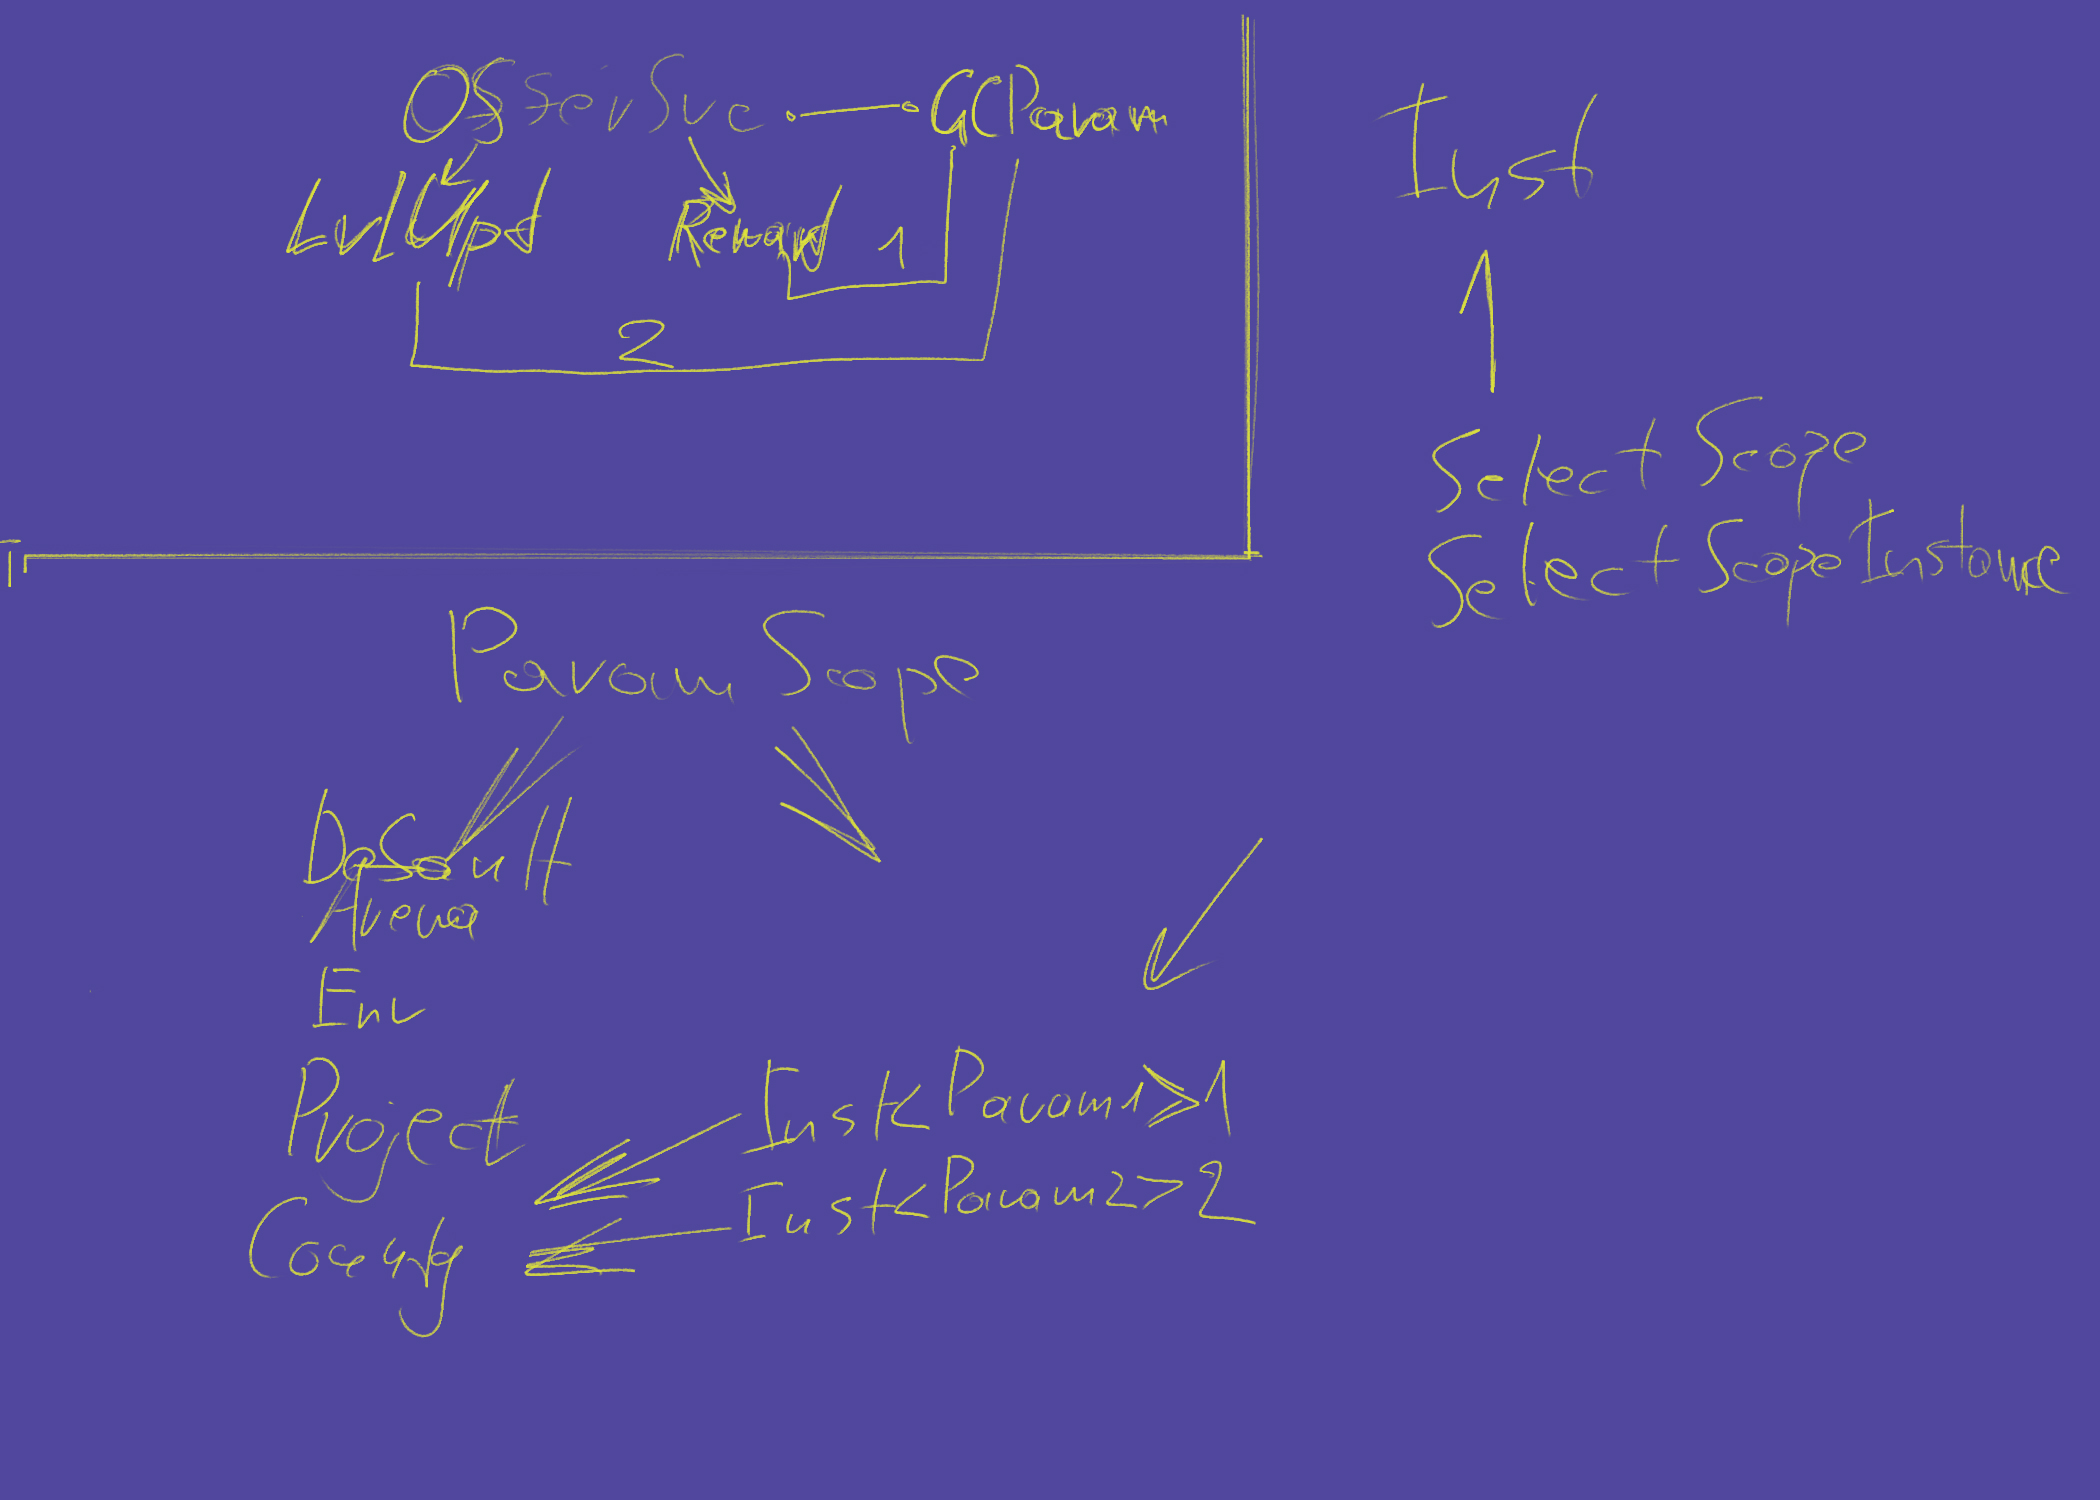 OfferSvc GCParam
LvlUpd Reward 1
2
Inst
1
Select Scope
Select ScopeInstance
Param Scope
Default
Arena
Env
Project
Inst<Param1>1
Inst<Param2>2